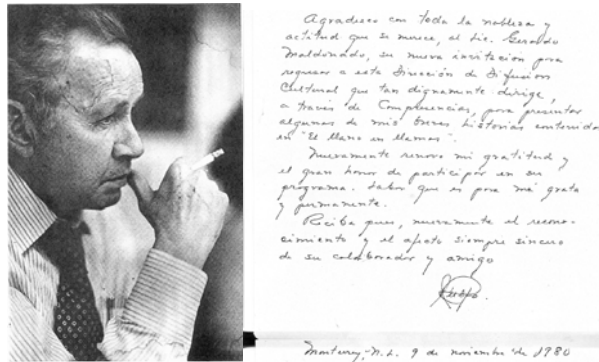 Agradezco con toda la nobleza y
actitud que se merece, al Lic. Gerardo
Maldonado, su nueva invitación para
regresar a esta Dirección de Difusión
Cultural que tan dignamente dirige,
a través de Comparecencias, para presentar
algunas de mis breves historias contenidas
en "El llano en llamas".
Nuevamente renovo mi gratitud y
el gran honor de participar en su
programa. Labor que es para mí grata
y permanente.
Reciba pues, nuevamente el recono-
cimiento y el afecto siempre sincero
de su colaborador y amigo
Monterrey, N.L. 9 de noviembre de 1980